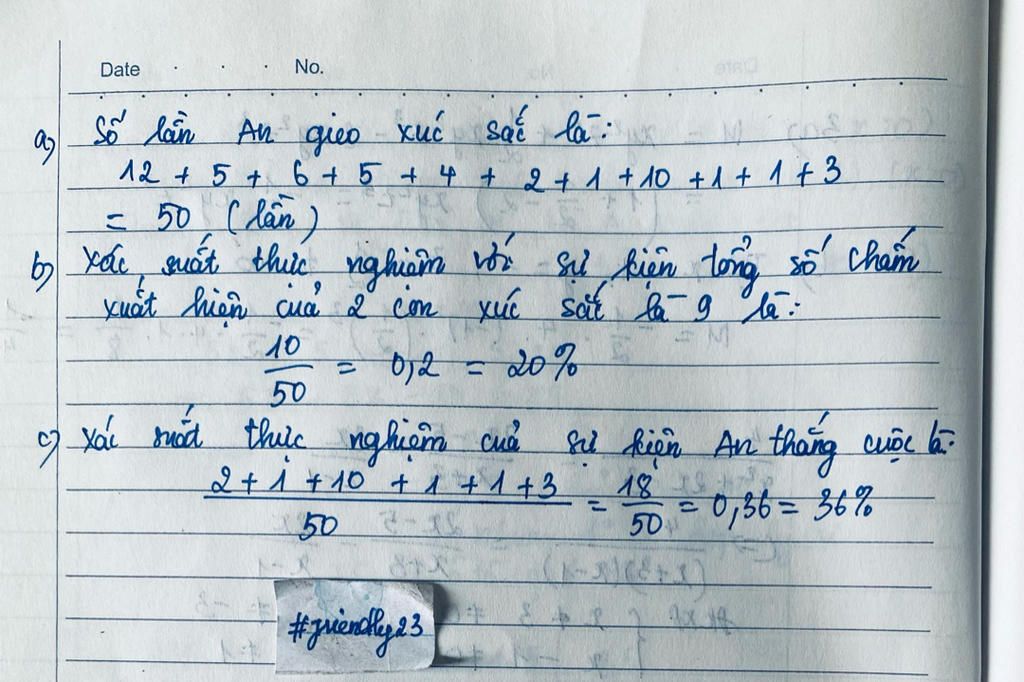 Date . . . No.
a) Số lần An gieo xúc sắc là:
12 + 5 + 6 + 5 + 4 + 2 + 1 + 10 + 1 + 1 + 3
= 50 (lần)
b) Xác suất thực nghiệm với sự kiện tổng số chấm
xuất hiện của 2 con xúc sắc là 9 là:
10/50 = 0,2 = 20%
c) Xác suất thực nghiệm của sự kiện An thắng cuộc là:
(2 + 1 + 10 + 1 + 1 + 3)/50 = 18/50 = 0,36 = 36%
#friendly23